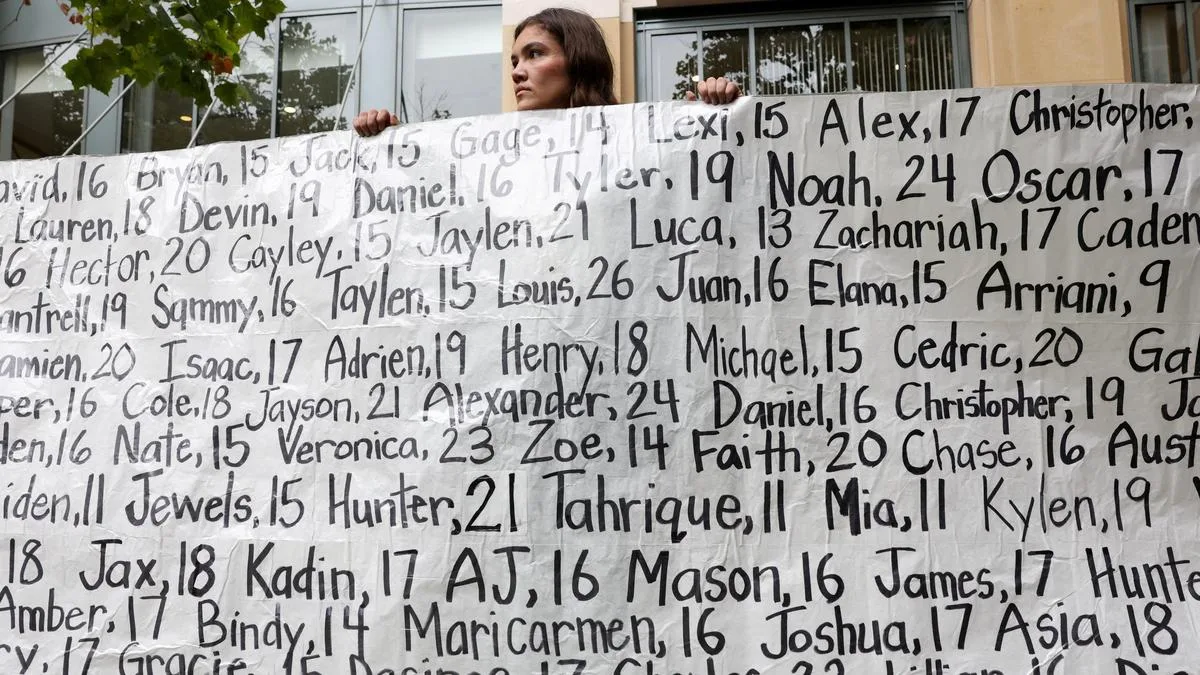 avid, 16 Bryan, 15 Jack, 15 Gage, 14 Lexi, 15 Alex, 17 Christopher,
Lauren, 18 Devin, 19 Daniel, 16 Tyler, 19 Noah, 24 Oscar, 17
6 Hector, 20 Cayley, 15 Jaylen, 21 Luca, 13 Zachariah, 17 Caden
antrell, 19 Sammy, 16 Taylen, 15 Louis, 26 Juan, 16 Elana, 15 Arriani, 9
amien, 20 Isaac, 17 Adrien, 19 Henry, 18 Michael, 15 Cedric, 20 Gal
per, 16 Cole, 18 Jayson, 21 Alexander, 24 Daniel, 16 Christopher, 19 Ja
den, 16 Nate, 15 Veronica, 23 Zoe, 14 Faith, 20 Chase, 16 Aust
iden, 11 Jewels, 15 Hunter, 21 Tahrique, 11 Mia, 11 Kylen, 19
18 Jax, 18 Kadin, 17 AJ, 16 Mason, 16 James, 17 Hunte
Amber, 17 Bindy, 14 Maricarmen, 16 Joshua, 17 Asia, 18
ry, 17 Gracie, 15 17 Charles, 22